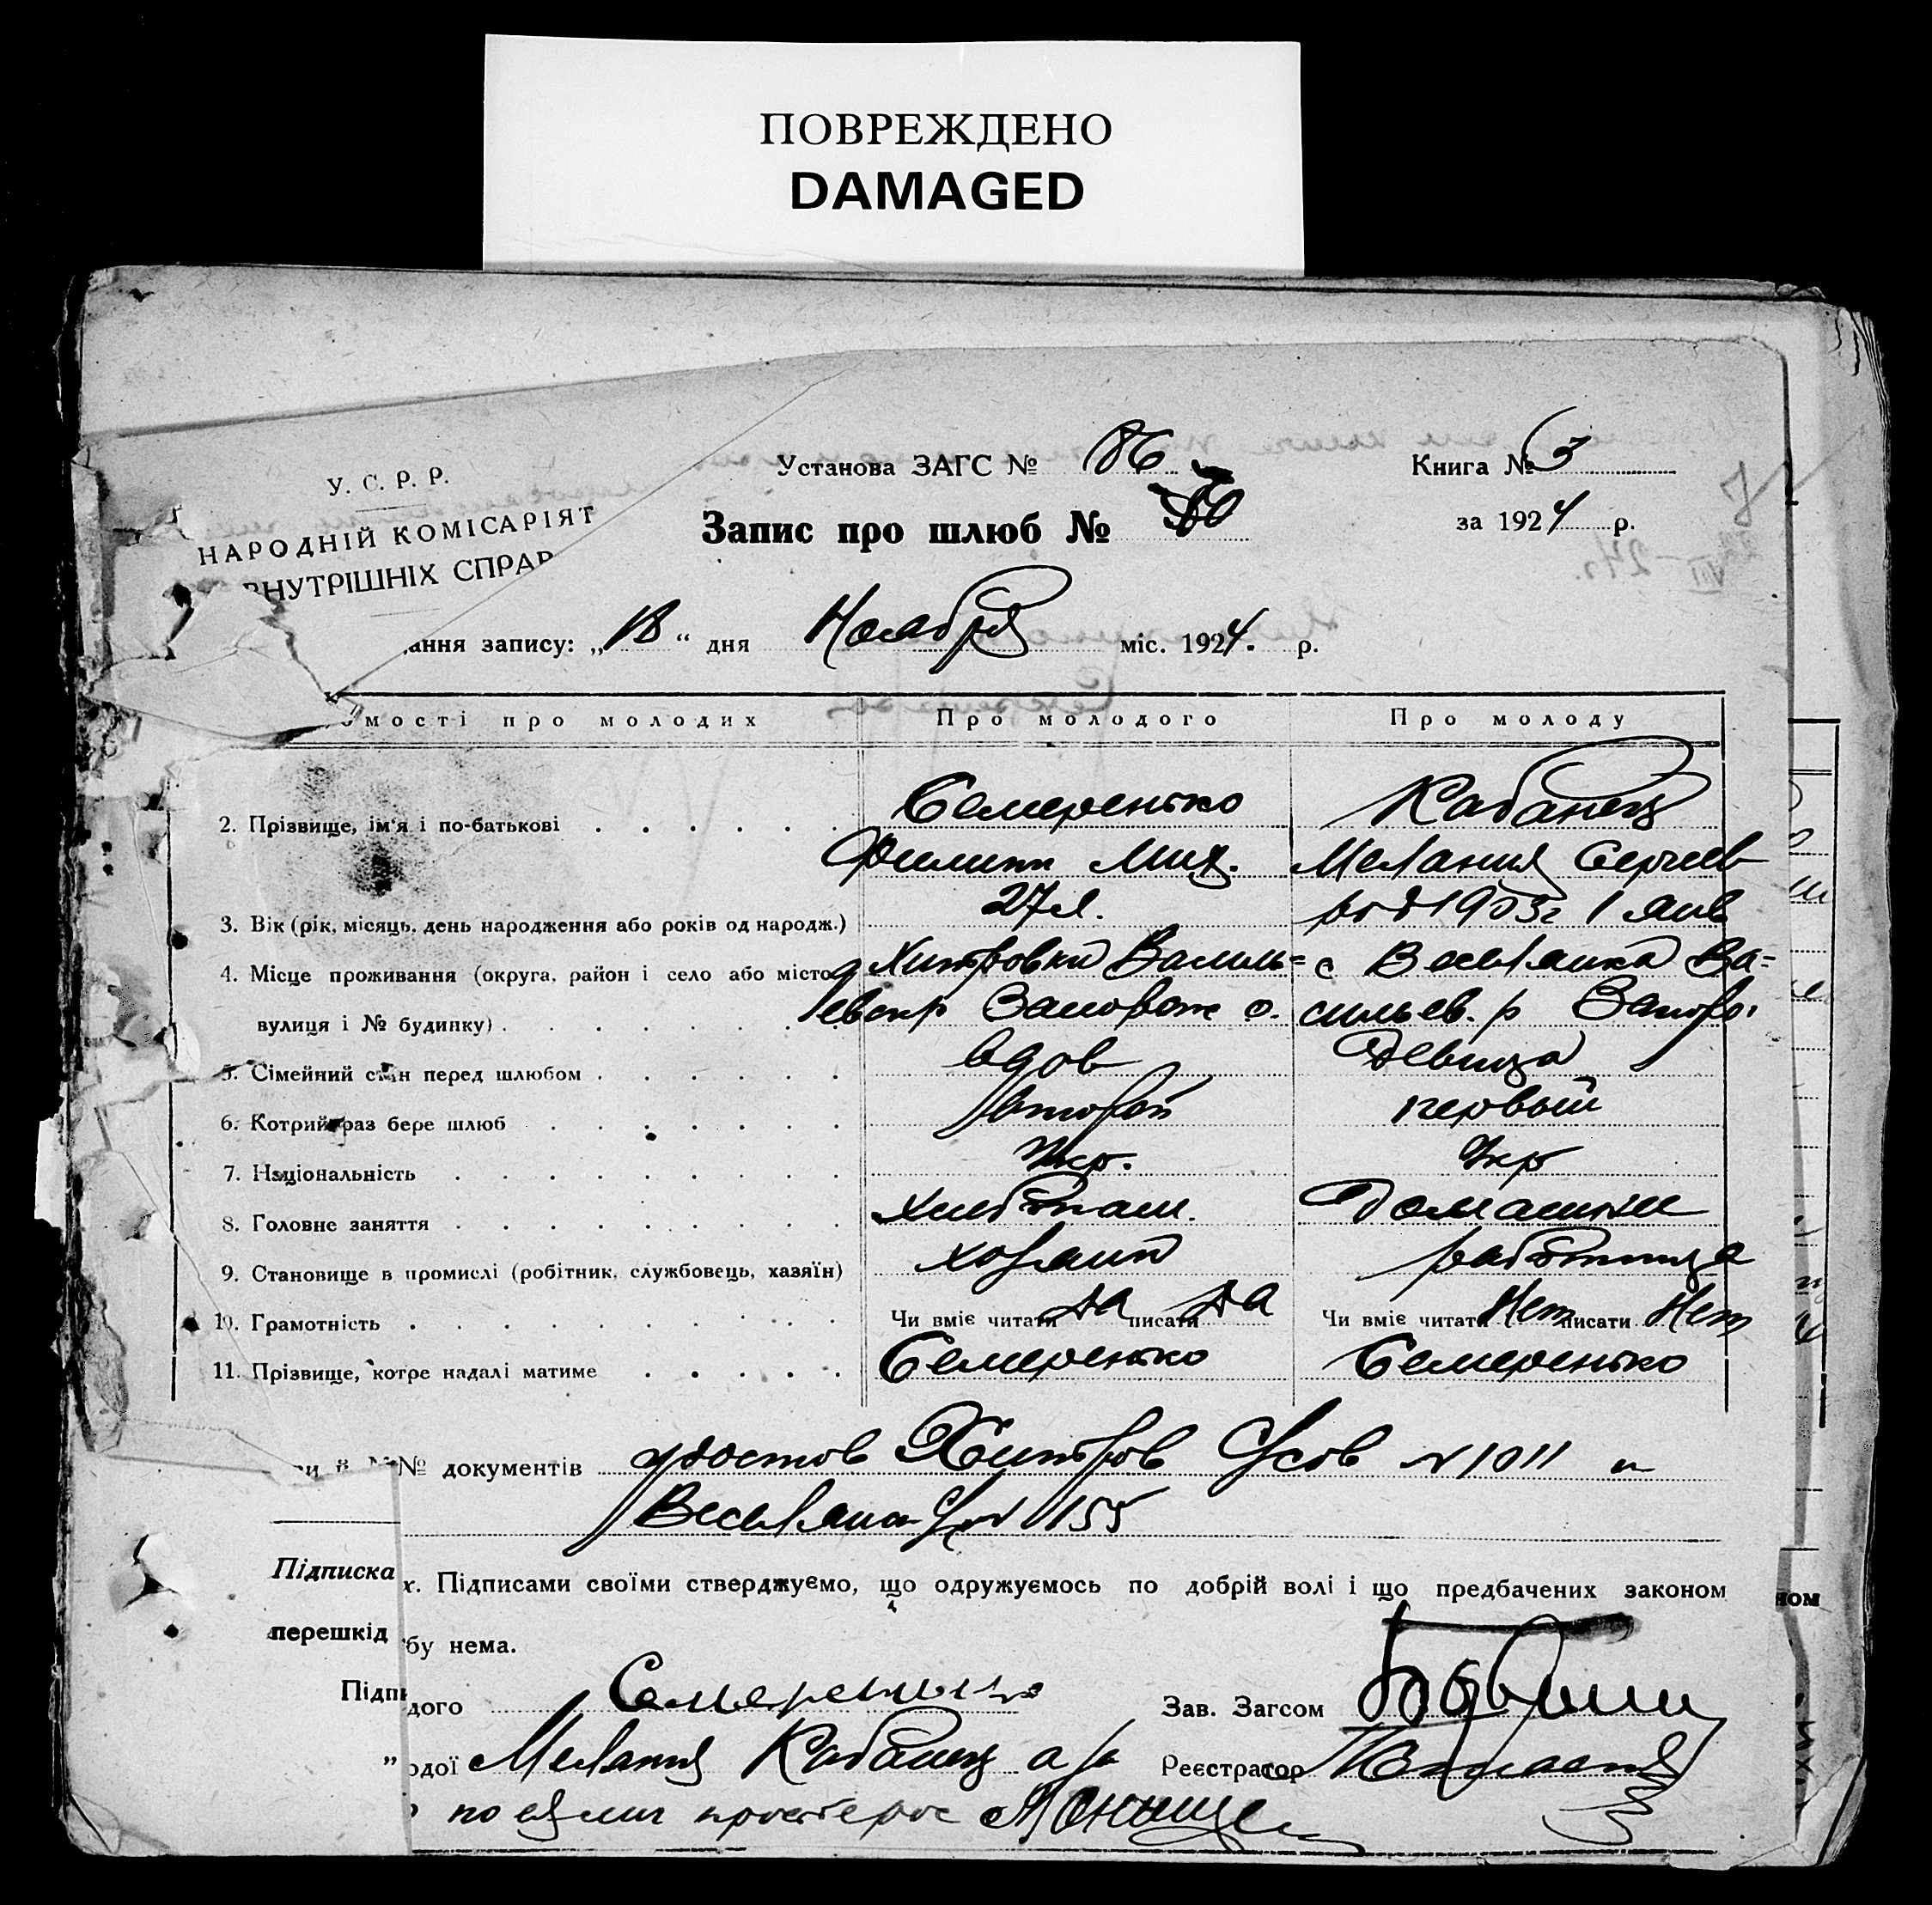 ПОВРЕЖДЕНО
DAMAGED
У. С. Р. Р.
НАРОДНІЙ КОМІСАРІЯТ
ВНУТРІШНІХ СПРАВ
Установа ЗАГС № 86
Книга № 3
Запис про шлюб № 60
за 1924 р.
ання запису: „18“ дня Ноября міс. 1924. р.
омості про молодих Про молодого Про молоду
2. Прізвище, ім'я і по-батькові Семеренько Кабанец
Филипп Мих. Мелания Сергеев
3. Вік (рік, місяць, день народження або років од народж.) 27 л. род 1903 г 1 янв
4. Місце проживання (округа, район і село або місто, Хитровки Василь= с Веселянка Ва=
вулиця і № будинку) евск р Запорож о. сильев. р Запоро
5. Сімейний стан перед шлюбом вдов Девица
6. Котрий раз бере шлюб второй первый
7. Національність Укр. Укр
8. Головне заняття хлебопаш. Домашняя
9. Становище в промислі (робітник, службовець, хазяїн) хозяин работница
10. Грамотність Чи вміє читати да писати да Чи вміє читати Нет писати Нет
11. Прізвище, котре надалі матиме Семеренько Семеренько
№№ документів удостов Хитров № 1011 и
Веселян 1155
Підписка х. Підписами своїми стверджуємо, що одружуємось по добрій волі і що предбачених законом
перешкід бу нема.
Підпи дого Семеренько Зав. Загсом
„ одої Мелания Кабанец а/г Реєстратор